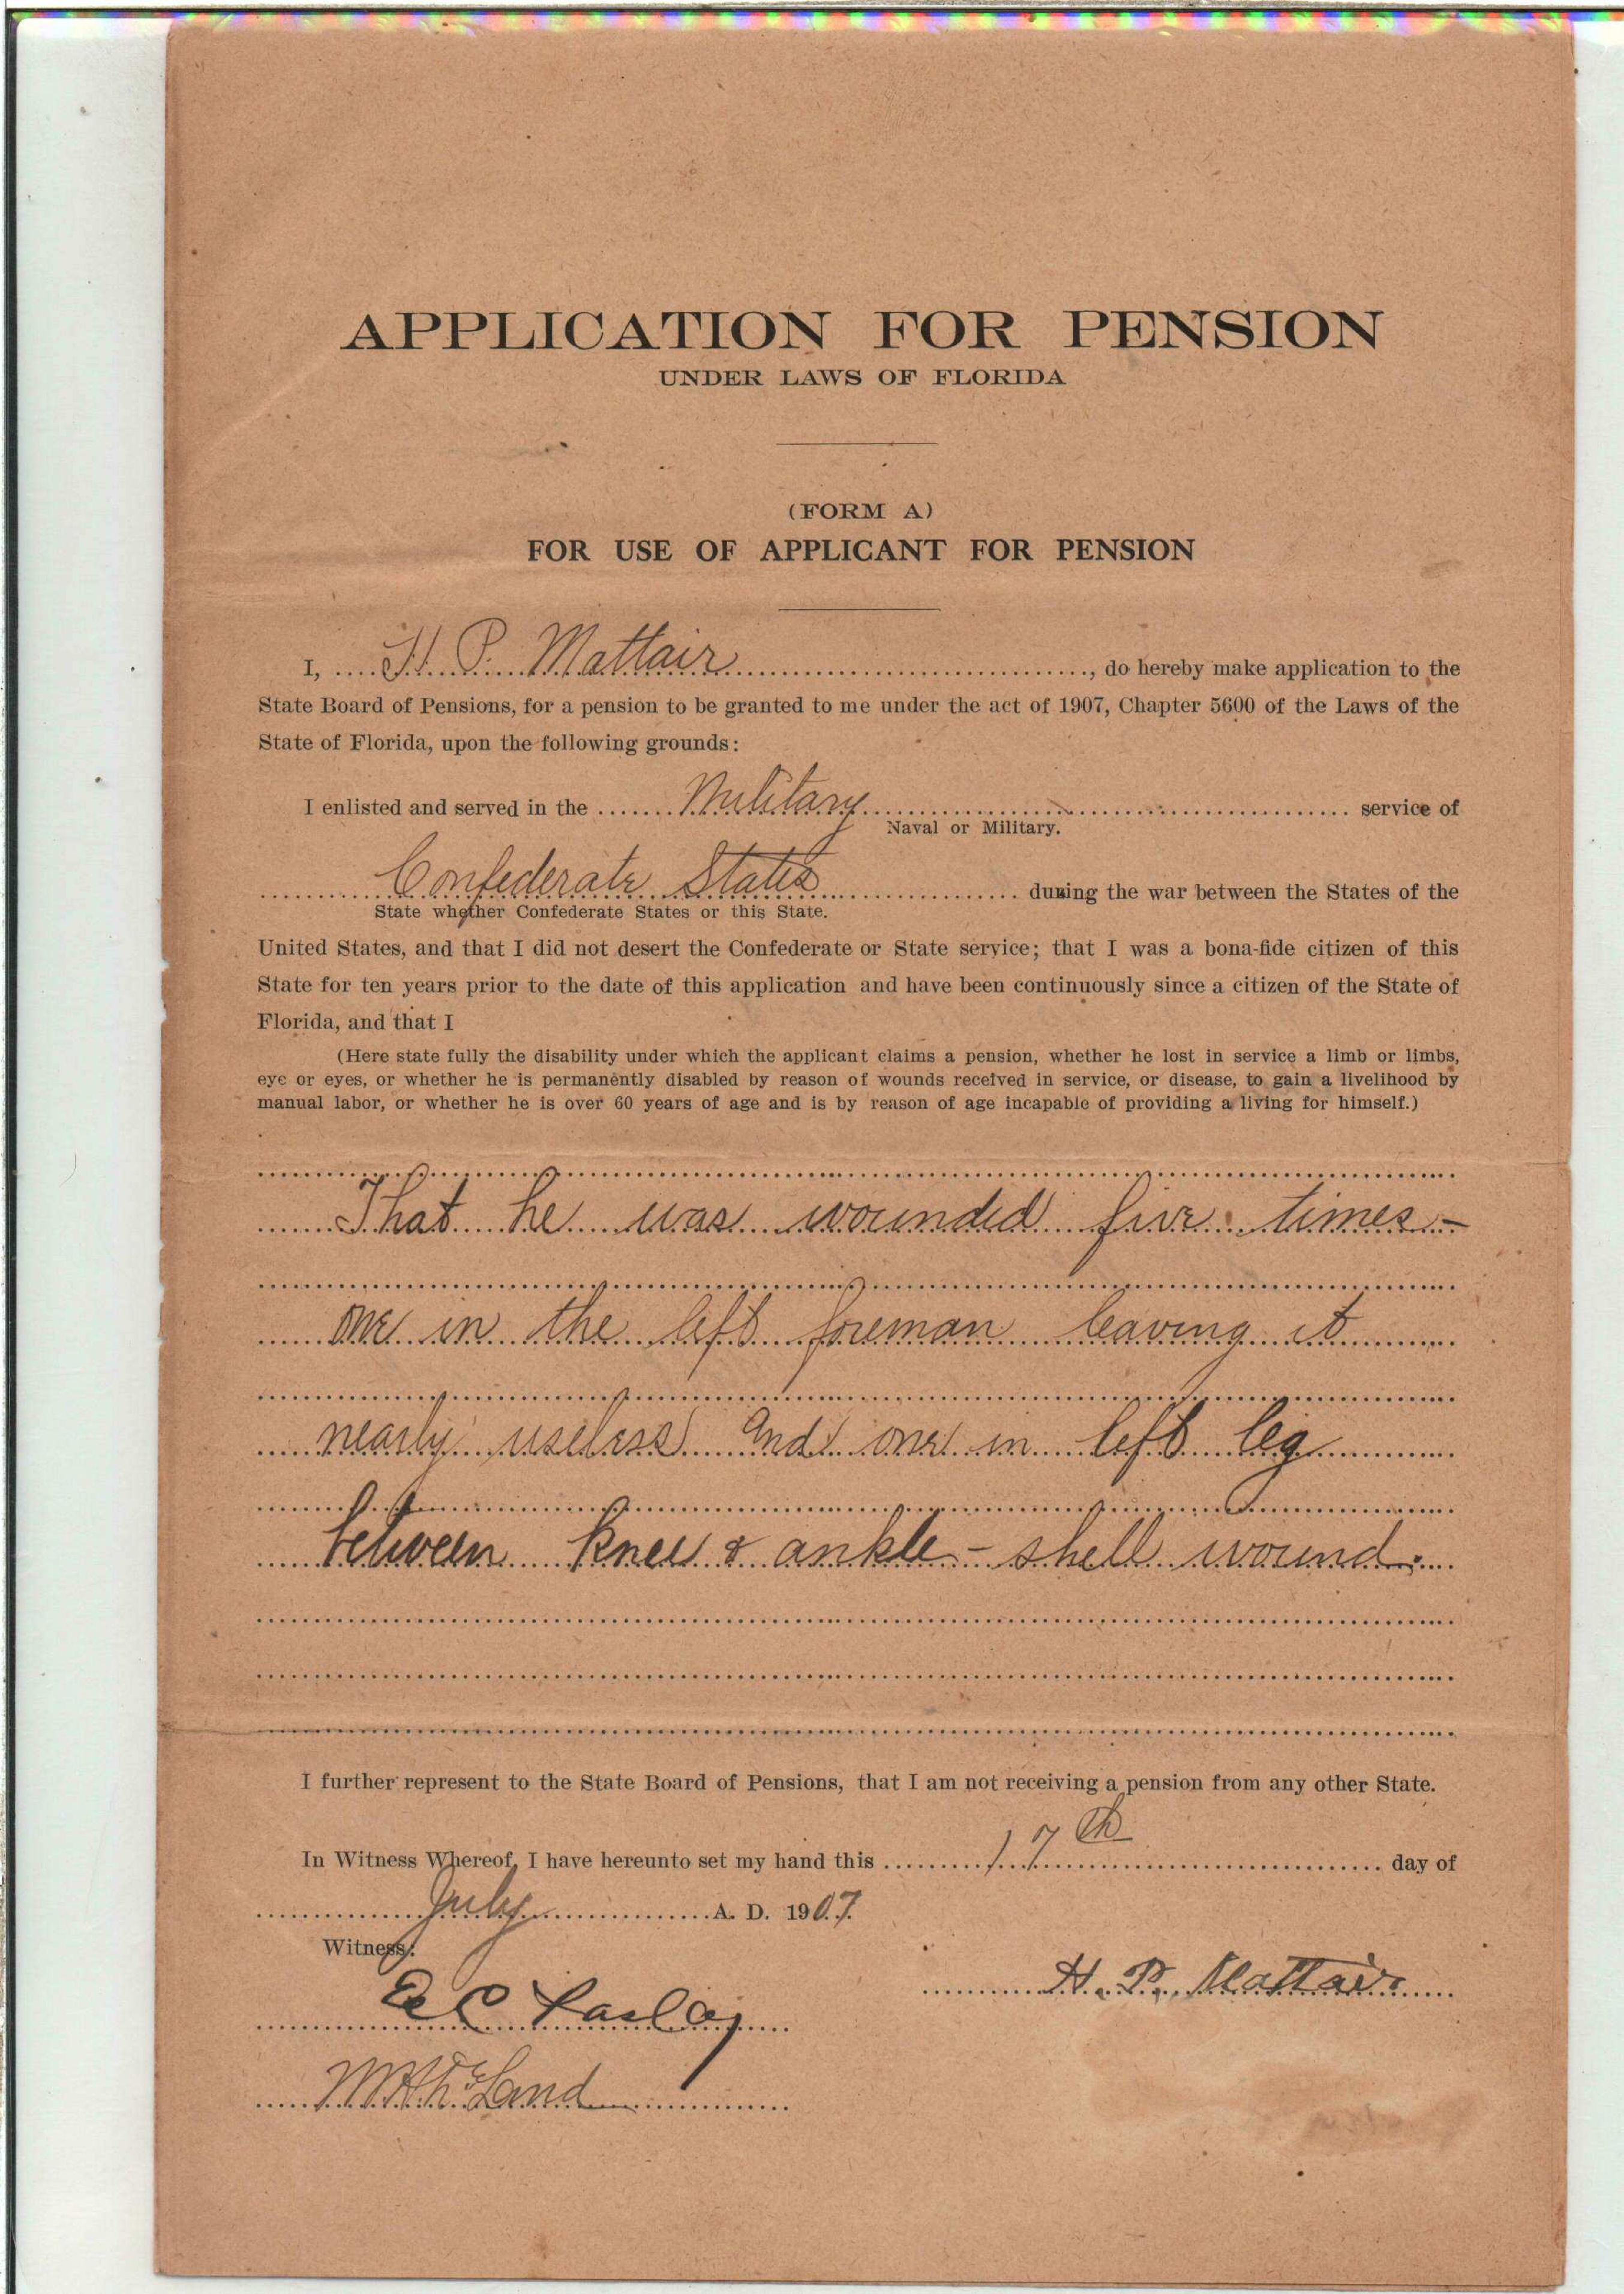 APPLICATION FOR PENSION
UNDER LAWS OF FLORIDA
(FORM A)
FOR USE OF APPLICANT FOR PENSION
I, H. P. Mattair, do hereby make application to the
State Board of Pensions, for a pension to be granted to me under the act of 1907, Chapter 5600 of the Laws of the
State of Florida, upon the following grounds:
I enlisted and served in the Military service of
Naval or Military.
Confederate States during the war between the States of the
State whether Confederate States or this State.
United States, and that I did not desert the Confederate or State service; that I was a bona-fide citizen of this
State for ten years prior to the date of this application and have been continuously since a citizen of the State of
Florida, and that I
(Here state fully the disability under which the applicant claims a pension, whether he lost in service a limb or limbs,
eye or eyes, or whether he is permanently disabled by reason of wounds received in service, or disease, to gain a livelihood by
manual labor, or whether he is over 60 years of age and is by reason of age incapable of providing a living for himself.)
That he was wounded five times -
one in the left foreman leaving it
nearly useless and one in left leg
between knee & ankle - shell wound.
I further represent to the State Board of Pensions, that I am not receiving a pension from any other State.
In Witness Whereof, I have hereunto set my hand this 17th day of
July A. D. 1907.
Witness:
H. P. Mattair
Land